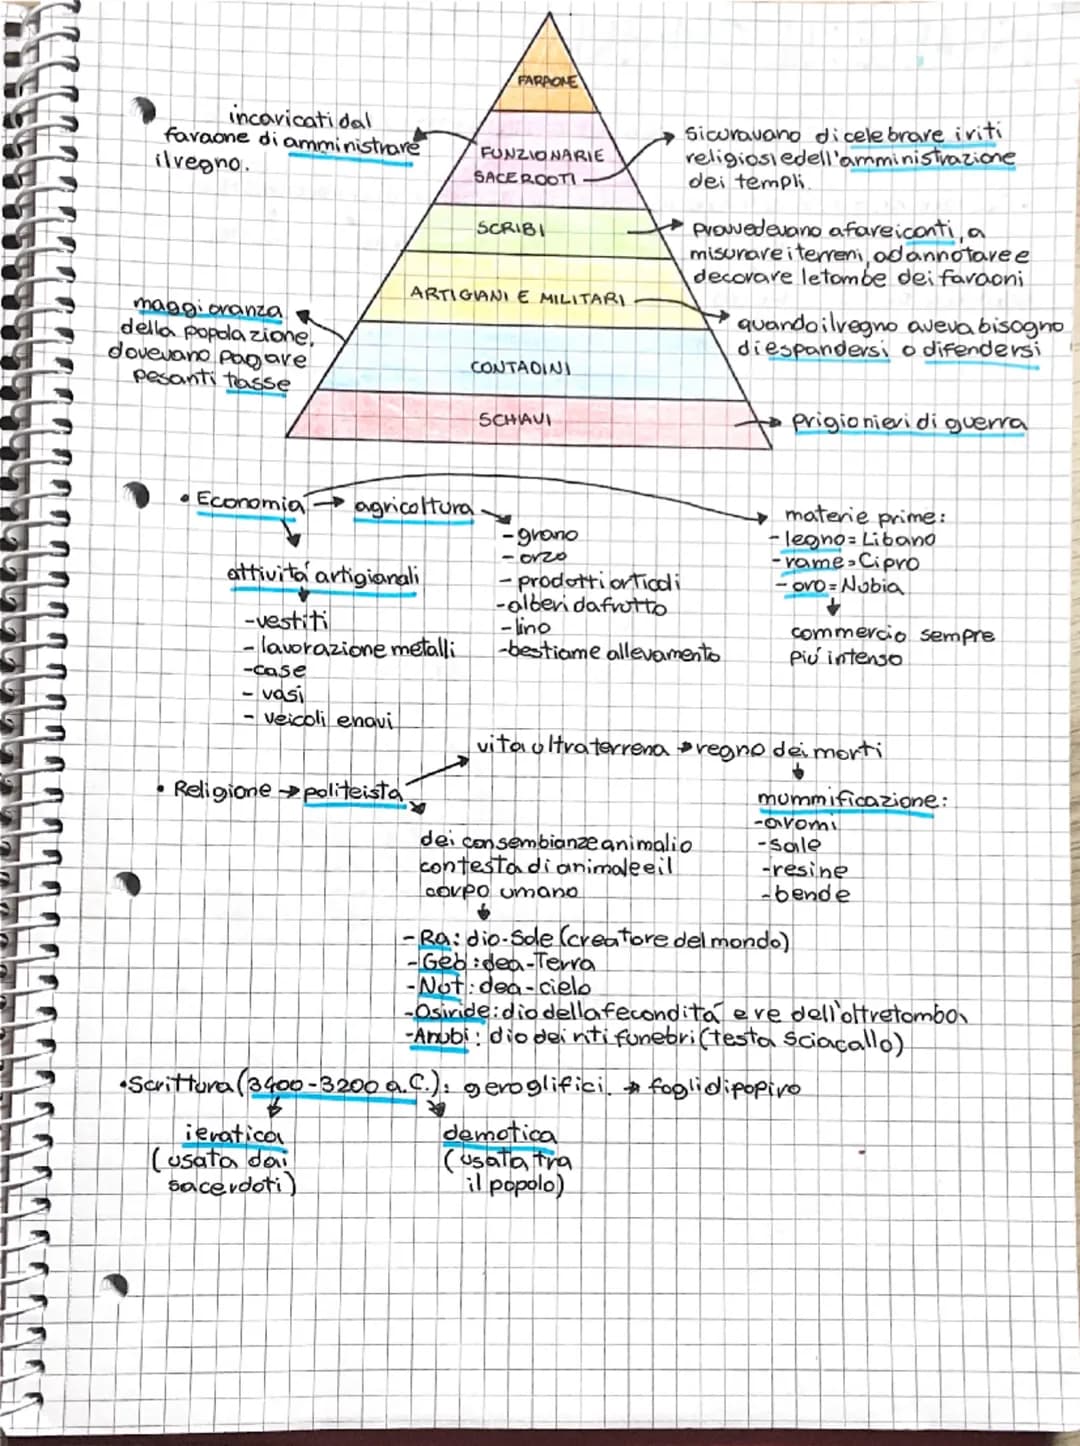 FARAONE
incaricati dal
faraone di amministrare
il regno.
FUNZIONARI E
SACERDOTI
si curavano di celebrare i riti
religiosi e dell'amministrazione
dei templi.
SCRIBI
provvedevano a fare i conti, a
misurare i terreni, ad annotare e
decorare le tombe dei faraoni
ARTIGIANI E MILITARI
quando il regno aveva bisogno
di espandersi o difendersi
maggioranza
della popolazione,
dovevano pagare
pesanti tasse
CONTADINI
SCHIAVI
prigionieri di guerra
• Economia → agricoltura
-grano
-orzo
-prodotti orticoli
-alberi da frutto
-lino
-bestiame allevamento
materie prime:
-legno=Libano
-rame=Cipro
-oro=Nubia
commercio sempre
più intenso
attività artigianali
-vestiti
-lavorazione metalli
-case
-vasi
-veicoli e navi
• Religione → politeista
vita ultraterrena → regno dei morti
mummificazione:
-aromi
-sale
-resine
-bende
dei con sembianze animali o
con testa di animale e il
corpo umano
-Ra: dio-Sole (creatore del mondo)
-Geb: dea-Terra
-Not: dea-cielo
-Osiride: dio della fecondità e re dell'oltretomba
-Anubi: dio dei riti funebri (testa sciacallo)
•Scrittura (3400-3200 a.C.): geroglifici. → fogli di papiro
ieratica
(usata dai
sacerdoti)
demotica
(usata tra
il popolo)